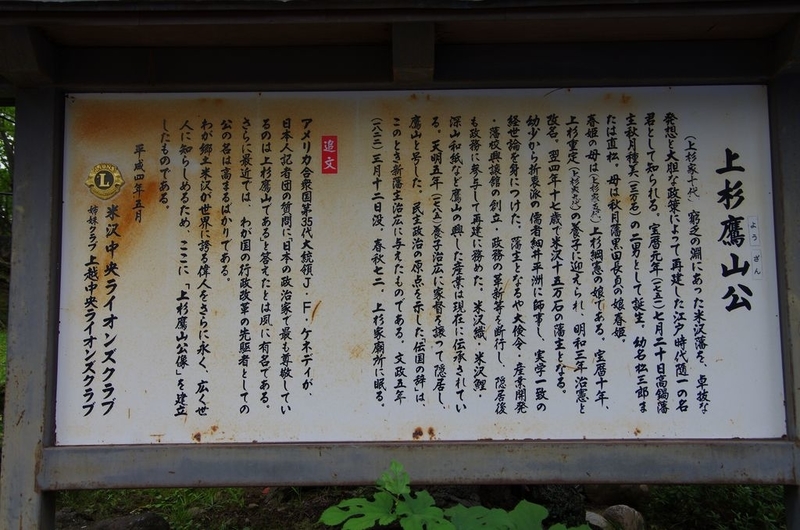 上杉鷹山公
ようざん
(上杉家十代) 窮乏の淵にあった米沢藩を、卓抜な
発想と大胆な政策によって再建した江戸時代随一の名
君として知られる。宝暦元年(一七五一)七月二十日高鍋藩
主秋月種美(三万石)の二男として誕生。幼名松三郎ま
たは直松。母は秋月藩黒田長貞の娘春姫。
春姫の母は(上杉家五代)上杉綱憲の娘である。宝暦十年、
上杉重定(上杉家九代)の養子に迎えられ、明和三年治憲と
改名。翌四年十七歳で米沢十五万石の藩主となる。
幼少から折衷派の儒者細井平洲に師事し、実学一致の
経世論を身につけた。藩主となるや大倹令・産業開発
・藩校興譲館の創立・政務の革新等を断行し、隠居後
も政務に参与して再建に務めた。米沢織・米沢鯉・
深山和紙など鷹山の興した産業は現在に伝承されてい
る。天明五年(一七八五)養子治広に家督を譲って隠居し、
鷹山と号した。民主政治の原点を示した「伝国の辞」は、
このとき新藩主治広に与えたものである。文政五年
(一八二二)三月十二日没、春秋七二、上杉家廟所に眠る。
追文
アメリカ合衆国第35代大統領J・F・ケネディが
日本人記者団の質問に「日本の政治家で最も尊敬してい
るのは上杉鷹山である」と答えたとは夙に有名である。
さらに最近では、わが国の行政改革の先駆者としての
公の名は高まるばかりである。
わが郷土米沢が世界に誇る偉人をさらに永く、広く世
人に知らしめるため、ここに「上杉鷹山公像」を建立
したものである。
平成四年五月
L
米沢中央ライオンズクラブ
姉妹クラブ 上越中央ライオンズクラブ